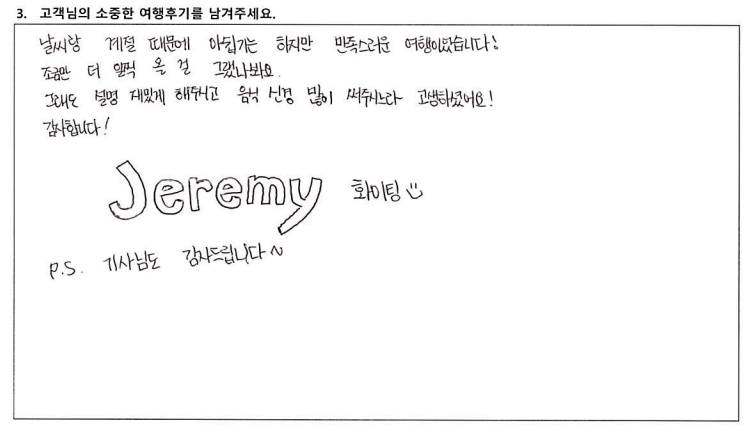 3. 고객님의 소중한 여행후기를 남겨주세요.
날씨랑 계절 때문에 아쉽기는 하지만 만족스러운 여행이었습니다!
조금만 더 일찍 올 걸 그랬나봐요.
그래도 설명 재밌게 해주시고 음식 신경 많이 써주시느라 고생하셨어요!
감사합니다!
Jeremy 화이팅
P.S. 기사님도 감사드립니다~